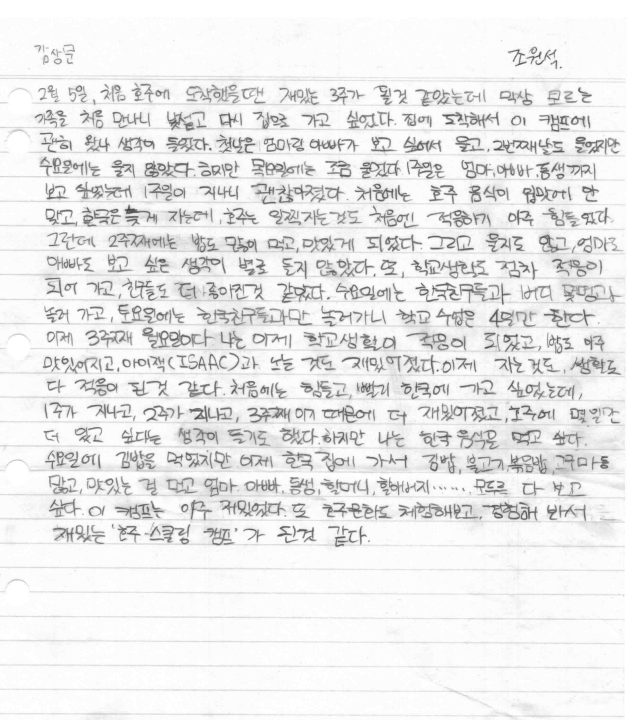 감상문 조원석.
2월 5일, 처음 호주에 도착했을땐 재밌는 3주가 될것 같았는데 막상 모르는
가족을 처음 만나니 낯설고 다시 집으로 가고 싶었다. 집에 도착해서 이 캠프에
괜히 왔나 생각이 들었다. 첫날은 엄마랑 아빠가 보고 싶어서 울고, 2번째날도 울었지만
수요일에는 울지 않았다. 하지만 목요일에는 조금 울었다. 1주일은 엄마, 아빠, 동생까지
보고 싶었는데 1주일이 지나니 괜찮아졌다. 처음에는 호주 음식이 입맛에 안
맞고, 한국은 늦게 자는데, 호주는 일찍자는것도 처음엔 적응하기 아주 힘들었다.
그런데 2주째에는 밥도 많이 먹고, 맛있게 되었다. 그리고 울지도 않고, 엄마도
아빠도 보고 싶은 생각이 별로 들지 않았다. 또, 학교생활도 점차 적응이
되어 가고, 친구들도 더 좋아진것 같았다. 수요일에는 한국친구들과 버디 몇명과
놀러 가고, 토요일에는 한국친구들과만 놀러가니 학교 수업은 4일만 한다.
이제 3주째 월요일이다. 나는 이제 학교생활이 적응이 되었고, 밥도 아주
맛있어지고, 아이작(ISAAC)과 노는 것도 재밌어졌다. 이제 자는것도, 생활도
다 적응이 된것 같다. 처음에는 힘들고, 빨리 한국에 가고 싶었는데,
1주가 지나고, 2주가 지나고, 3주째이기 때문에 더 재밌어졌고, 호주에 몇일간
더 있고 싶다는 생각이 들기도 했다. 하지만 나는 한국 음식을 먹고 싶다.
수요일에 김밥을 먹었지만 이제 한국 집에 가서 김밥, 불고기볶음밥, 고구마 등
많고, 맛있는 걸 먹고 엄마, 아빠, 동생, 할머니, 할아버지…… 모두를 다 보고
싶다. 이 캠프는 아주 재밌었다. 또 호주문화도 체험해보고, 경험해 봐서
재밌는 '호주 스쿨링 캠프'가 된것 같다.